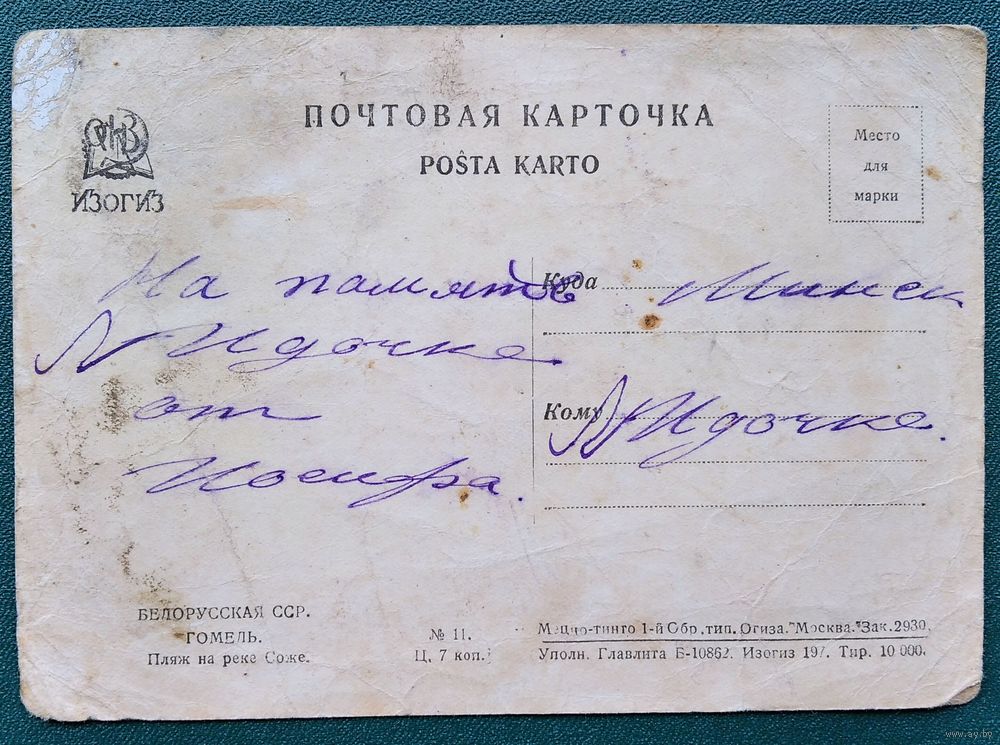 ПОЧТОВАЯ КАРТОЧКА
POŜTA KARTO
ИЗОГИЗ
Место
для
марки
На память
Лидочке
от
Иосифа.
Куда Минск
Кому Лидочке.
БЕЛОРУССКАЯ ССР.
ГОМЕЛЬ.
Пляж на реке Соже.
№ 11.
Ц. 7 коп.
Меццо-тинто 1-й Обр. тип. Огиза. "Москва." Зак. 2930.
Уполн. Главлита Б-10862. Изогиз 197. Тир. 10 000.
www.ay.by